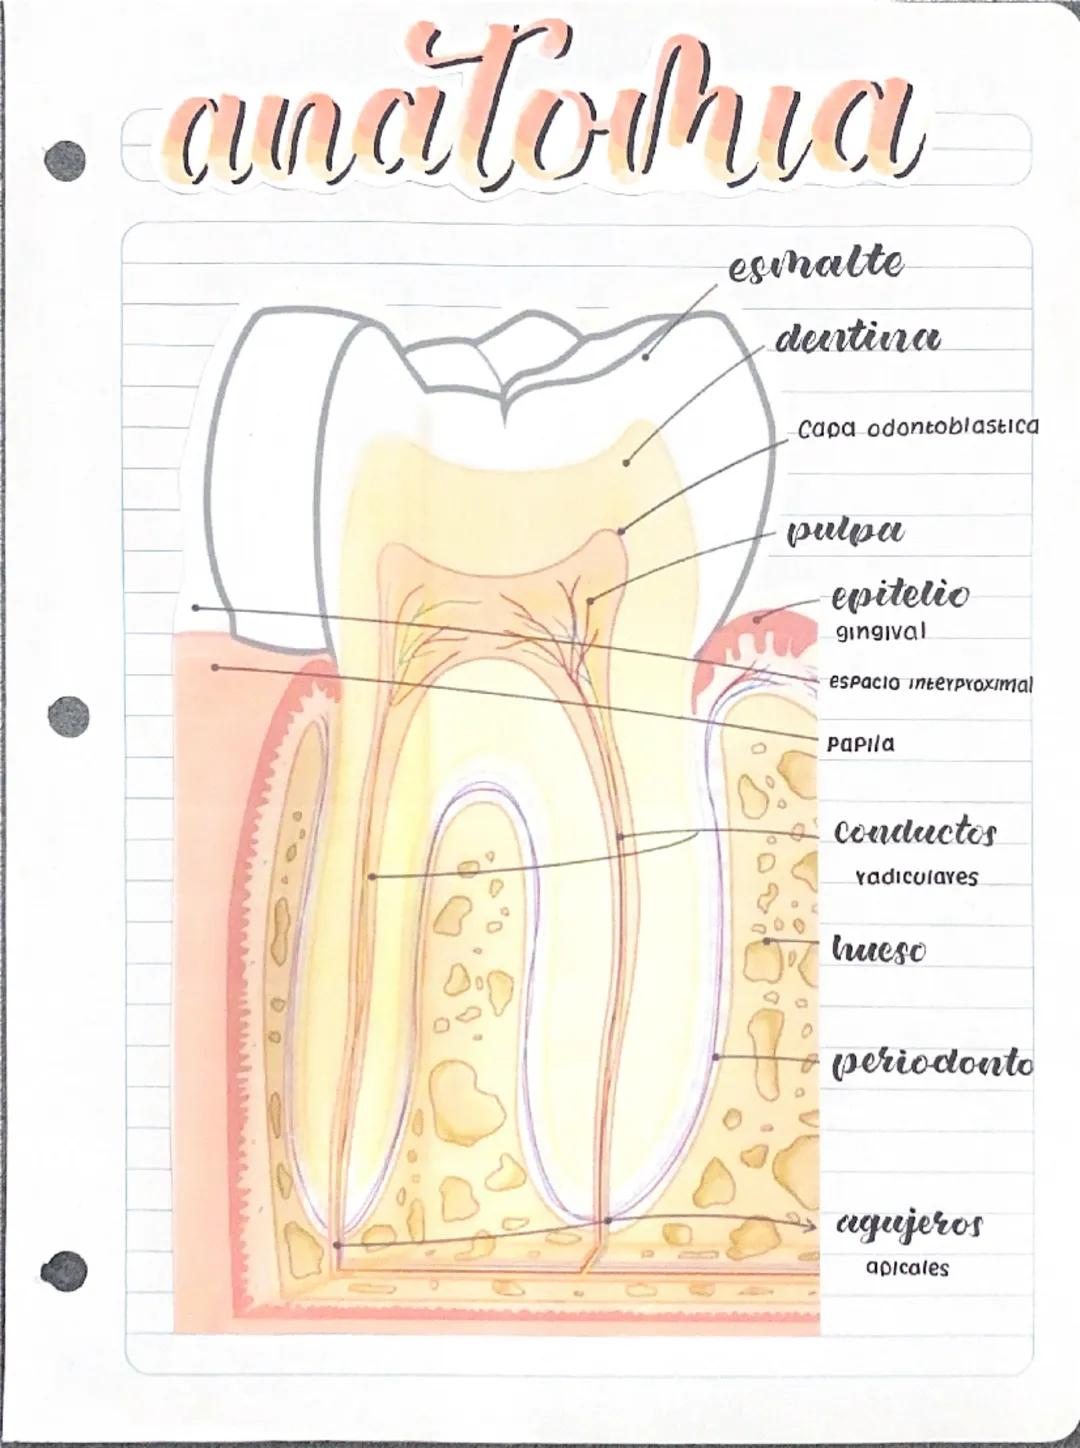 anatomia
esmalte
dentina
Capa odontoblastica
pulpa
epitelio
gingival
espacio interproximal
papila
conductos
radiculares
hueso
periodonto
agujeros
apicales